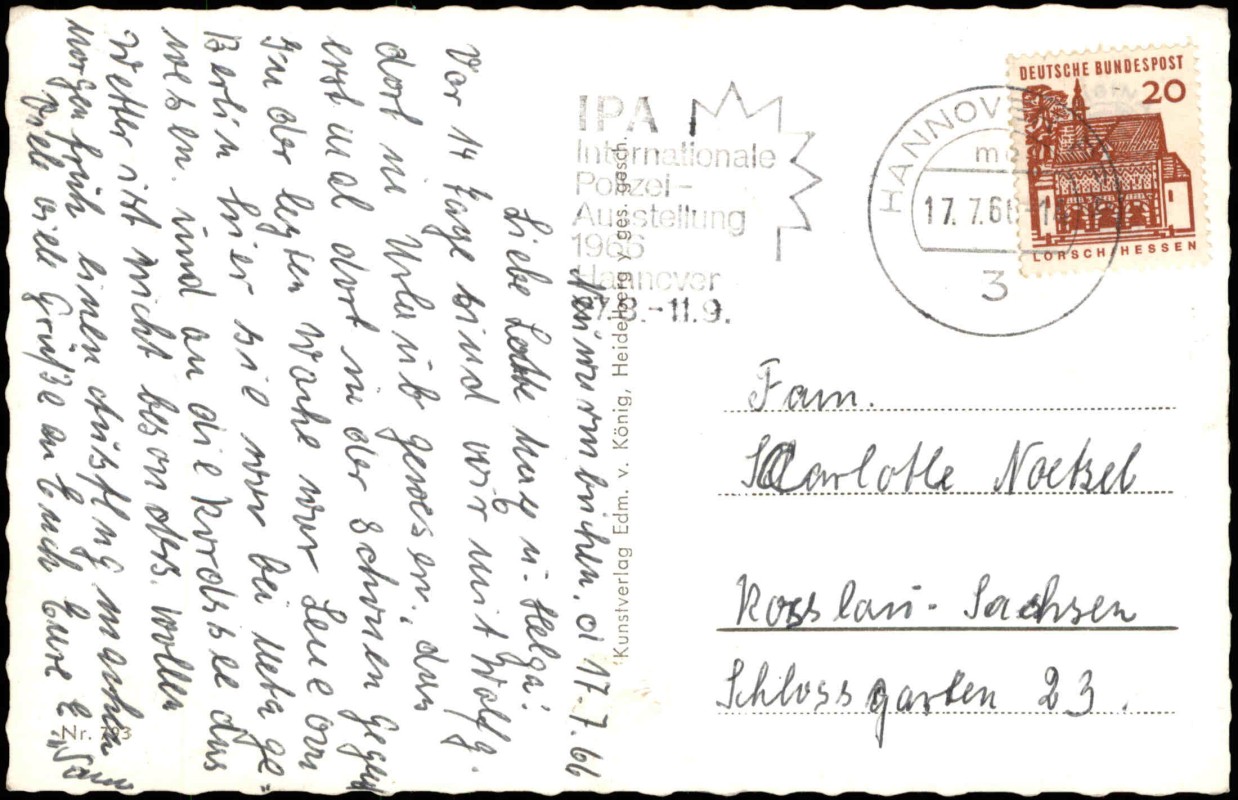 Neuwarmbüchen. d 17.7.66
Liebe Lotte Mutz u. Helga!
Vor 14 Tage sind wir mit Wolfg.
dort in Urlaub gewesen, dum
erst mal dort in der schönen Gegend
In der letzten Woche war Leue vom
Berlin hier sie war bei Meta ge=
wesen. und an die Nordsee das
Wetter ist nicht besonders. wollen
morgen früh einen Ausflug machen
viele viele Grüße an Euch Eure E
Nr. 793
Kunstverlag Edm. v. König, Heidelberg ges. gesch.
IPA
Internationale
Polizei-
Ausstellung
1966
Hannover
27.8.-11.9.
HANNOVER
17.7.66
3
DEUTSCHE BUNDESPOST
20
LORSCH HESSEN
Fam.
Charlotte Noetzel
Rosslau - Sachsen
Schlossgarten 23.